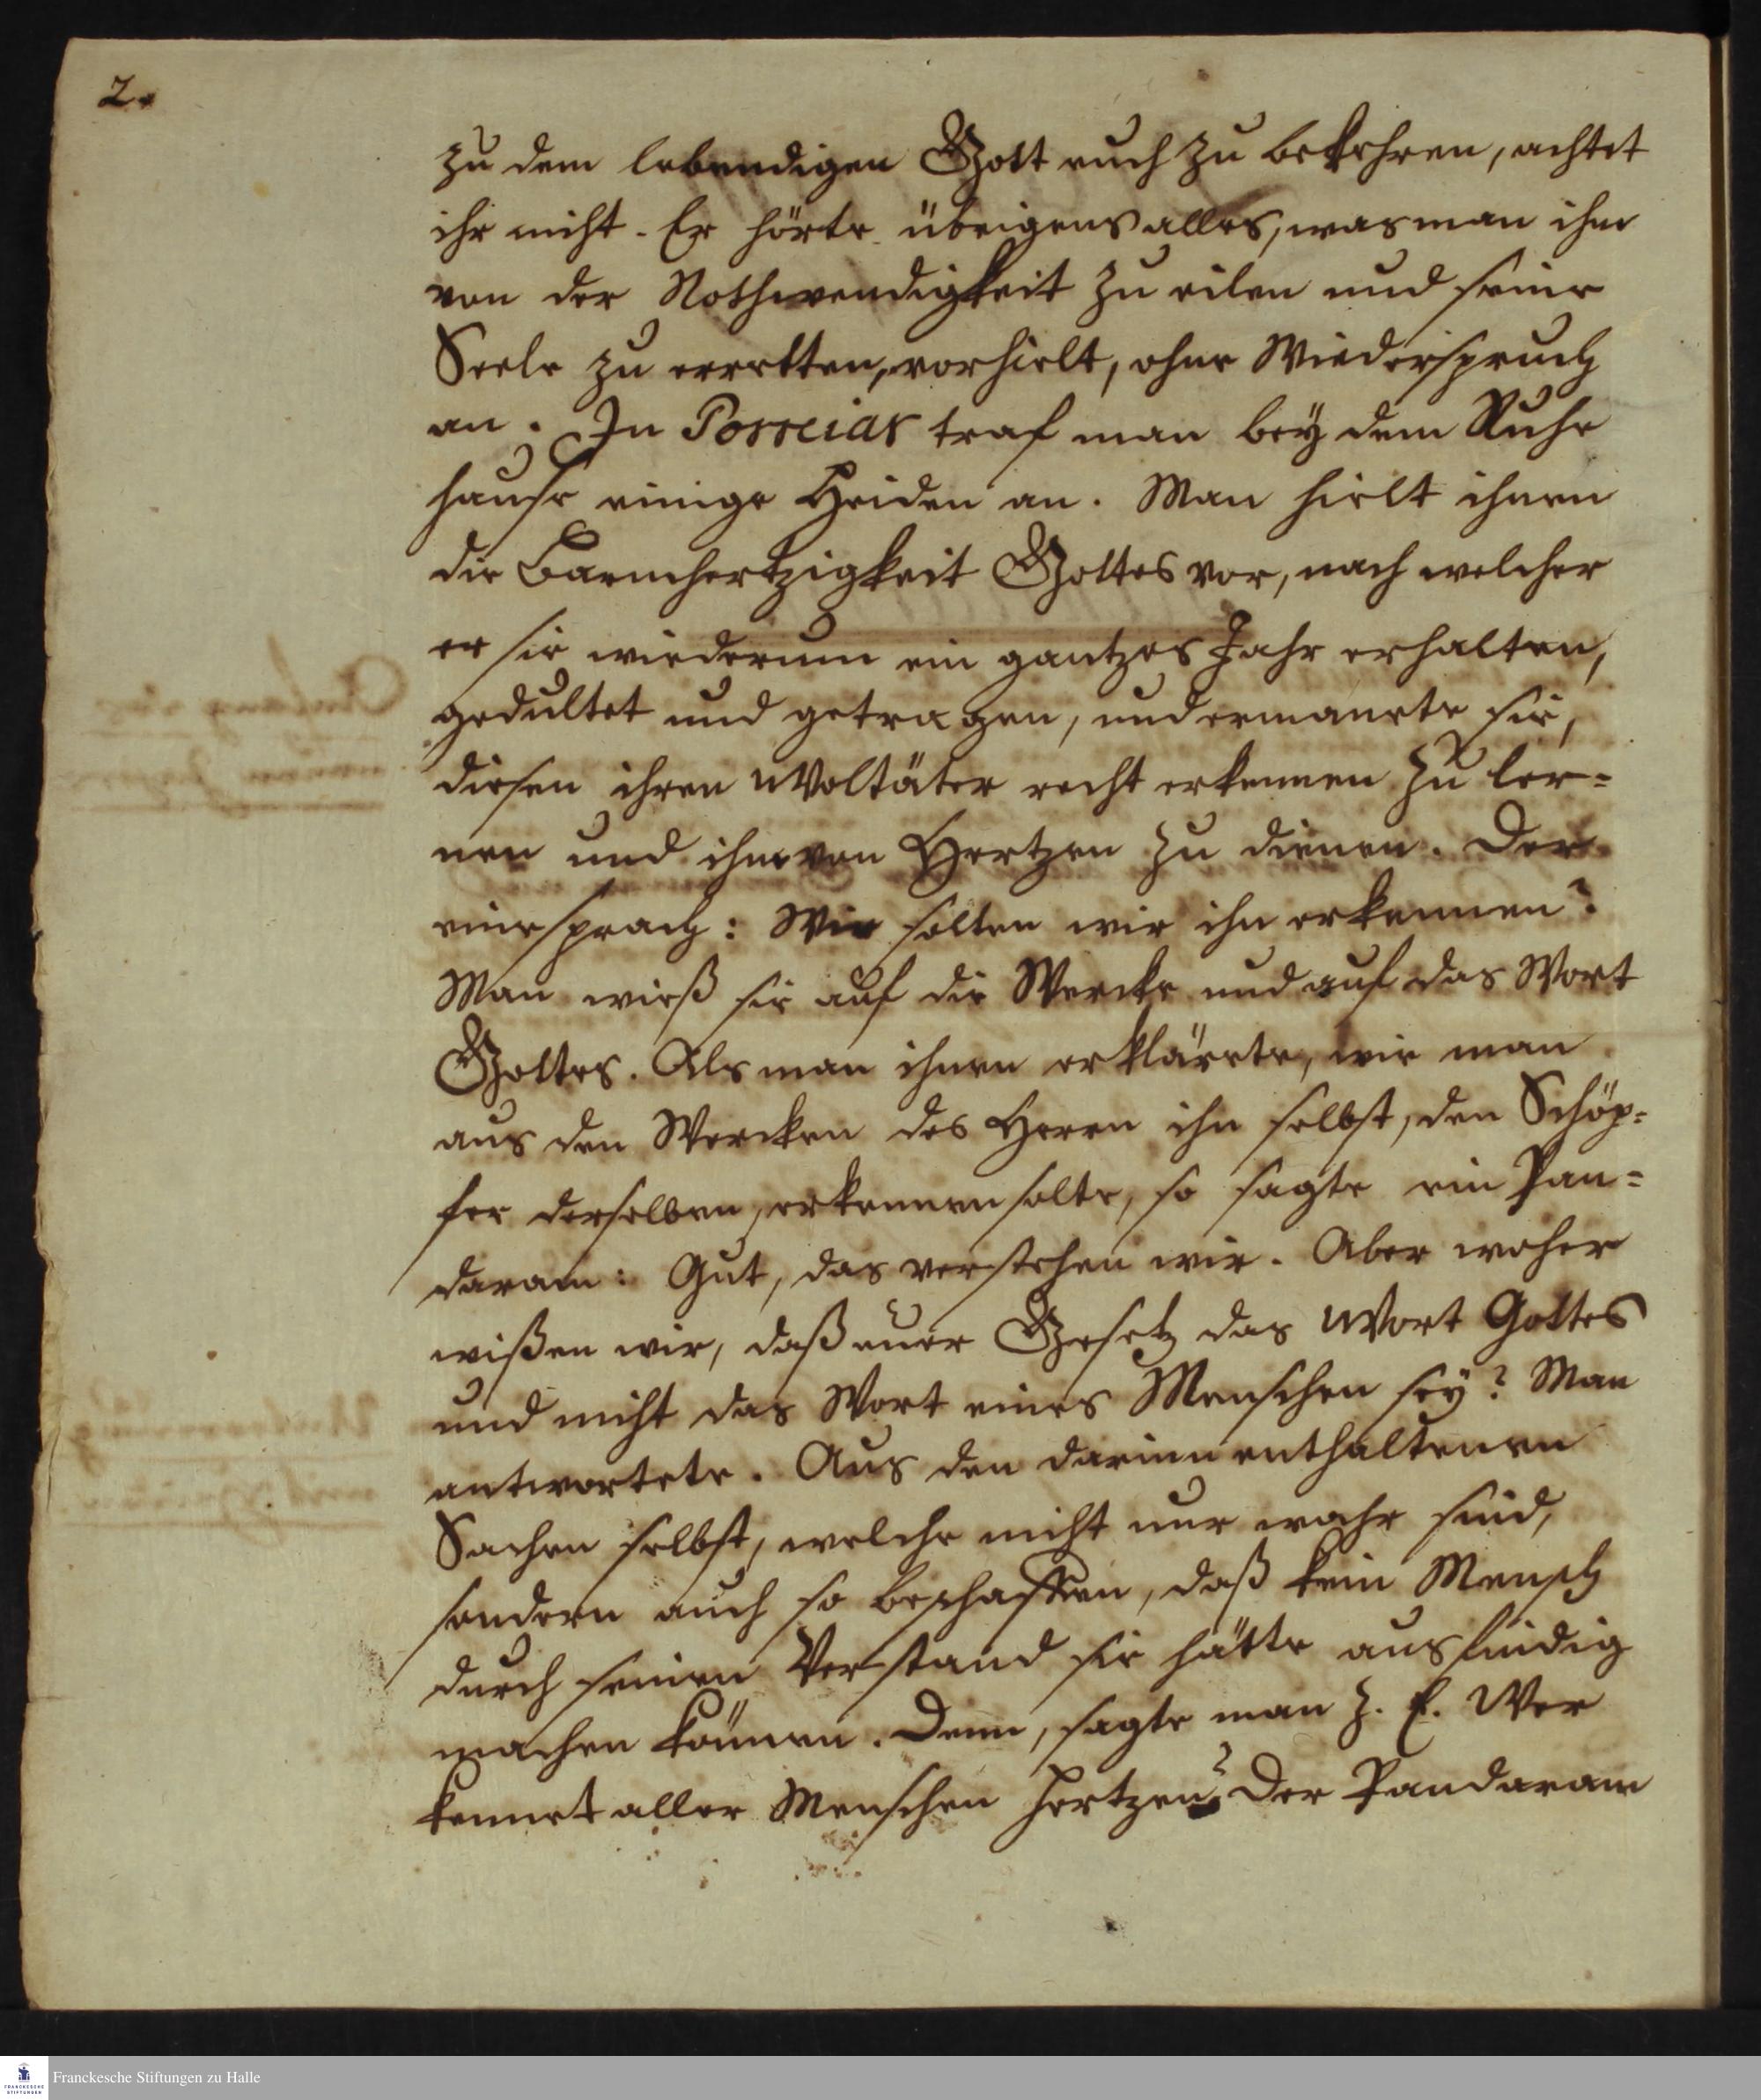 2.
zu dem lebendigen Gott euch zu bekehren, achtet
ihr nicht. Er hörte übrigens alles, was man ihm
von der Nothwendigkeit zu eilen und seine
Seele zu erretten, vorhielt, ohne Wiederspruch
an. In Porreiar traf man bey dem Ruhe
hause einige Heiden an. Man hielt ihnen
die Barmhertzigkeit Gottes vor, nach welcher
er sie wiederum ein gantzes Jahr erhalten,
gedultet und getragen, und ermanete sie,
diesen ihren Woltäter recht erkennen zu ler-
nen und ihm von Hertzen zu dienen. Der
eine sprach: Wie solten wir ihn erkennen?
Man wieß sie auf die Wercke und auf das Wort
Gottes. Als man ihnen erklärete, wie man
aus den Wercken des Herrn ihn selbst, den Schöp-
fer derselben, erkennen solte, so sagte ein Pan-
daram: Gut, das verstehen wir. Aber woher
wißen wir, daß euer Gesetz das Wort Gottes
und nicht das Wort eines Menschen sey? Man
antwortete. Aus den darinn enthaltenen
Sachen selbst, welche nicht nur wahr sind,
sondern auch so beschaffen, daß kein Mensch
durch seinen Verstand sie hätte ausfindig
machen können. Denn, sagte man z. E. Wer
kennet aller Menschen Hertzen? Der Pandaram
Franckesche Stiftungen zu Halle